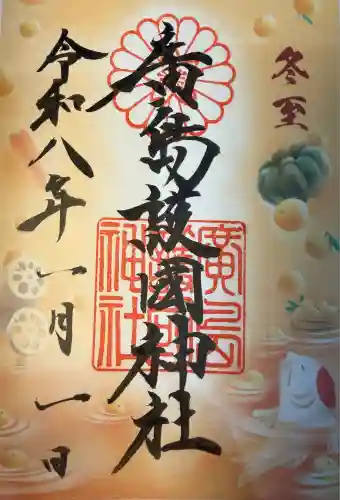 冬至
廣島護國神社
廣島護國神社
令和八年一月一日